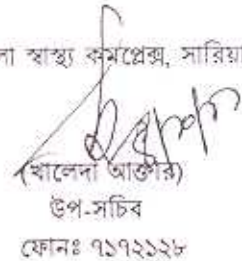 লা স্বাস্থ্য কমপ্লেক্স, সারিয়া
(খালেদা আক্তার)
উপ-সচিব
ফোনঃ ৭১৭২১২৮